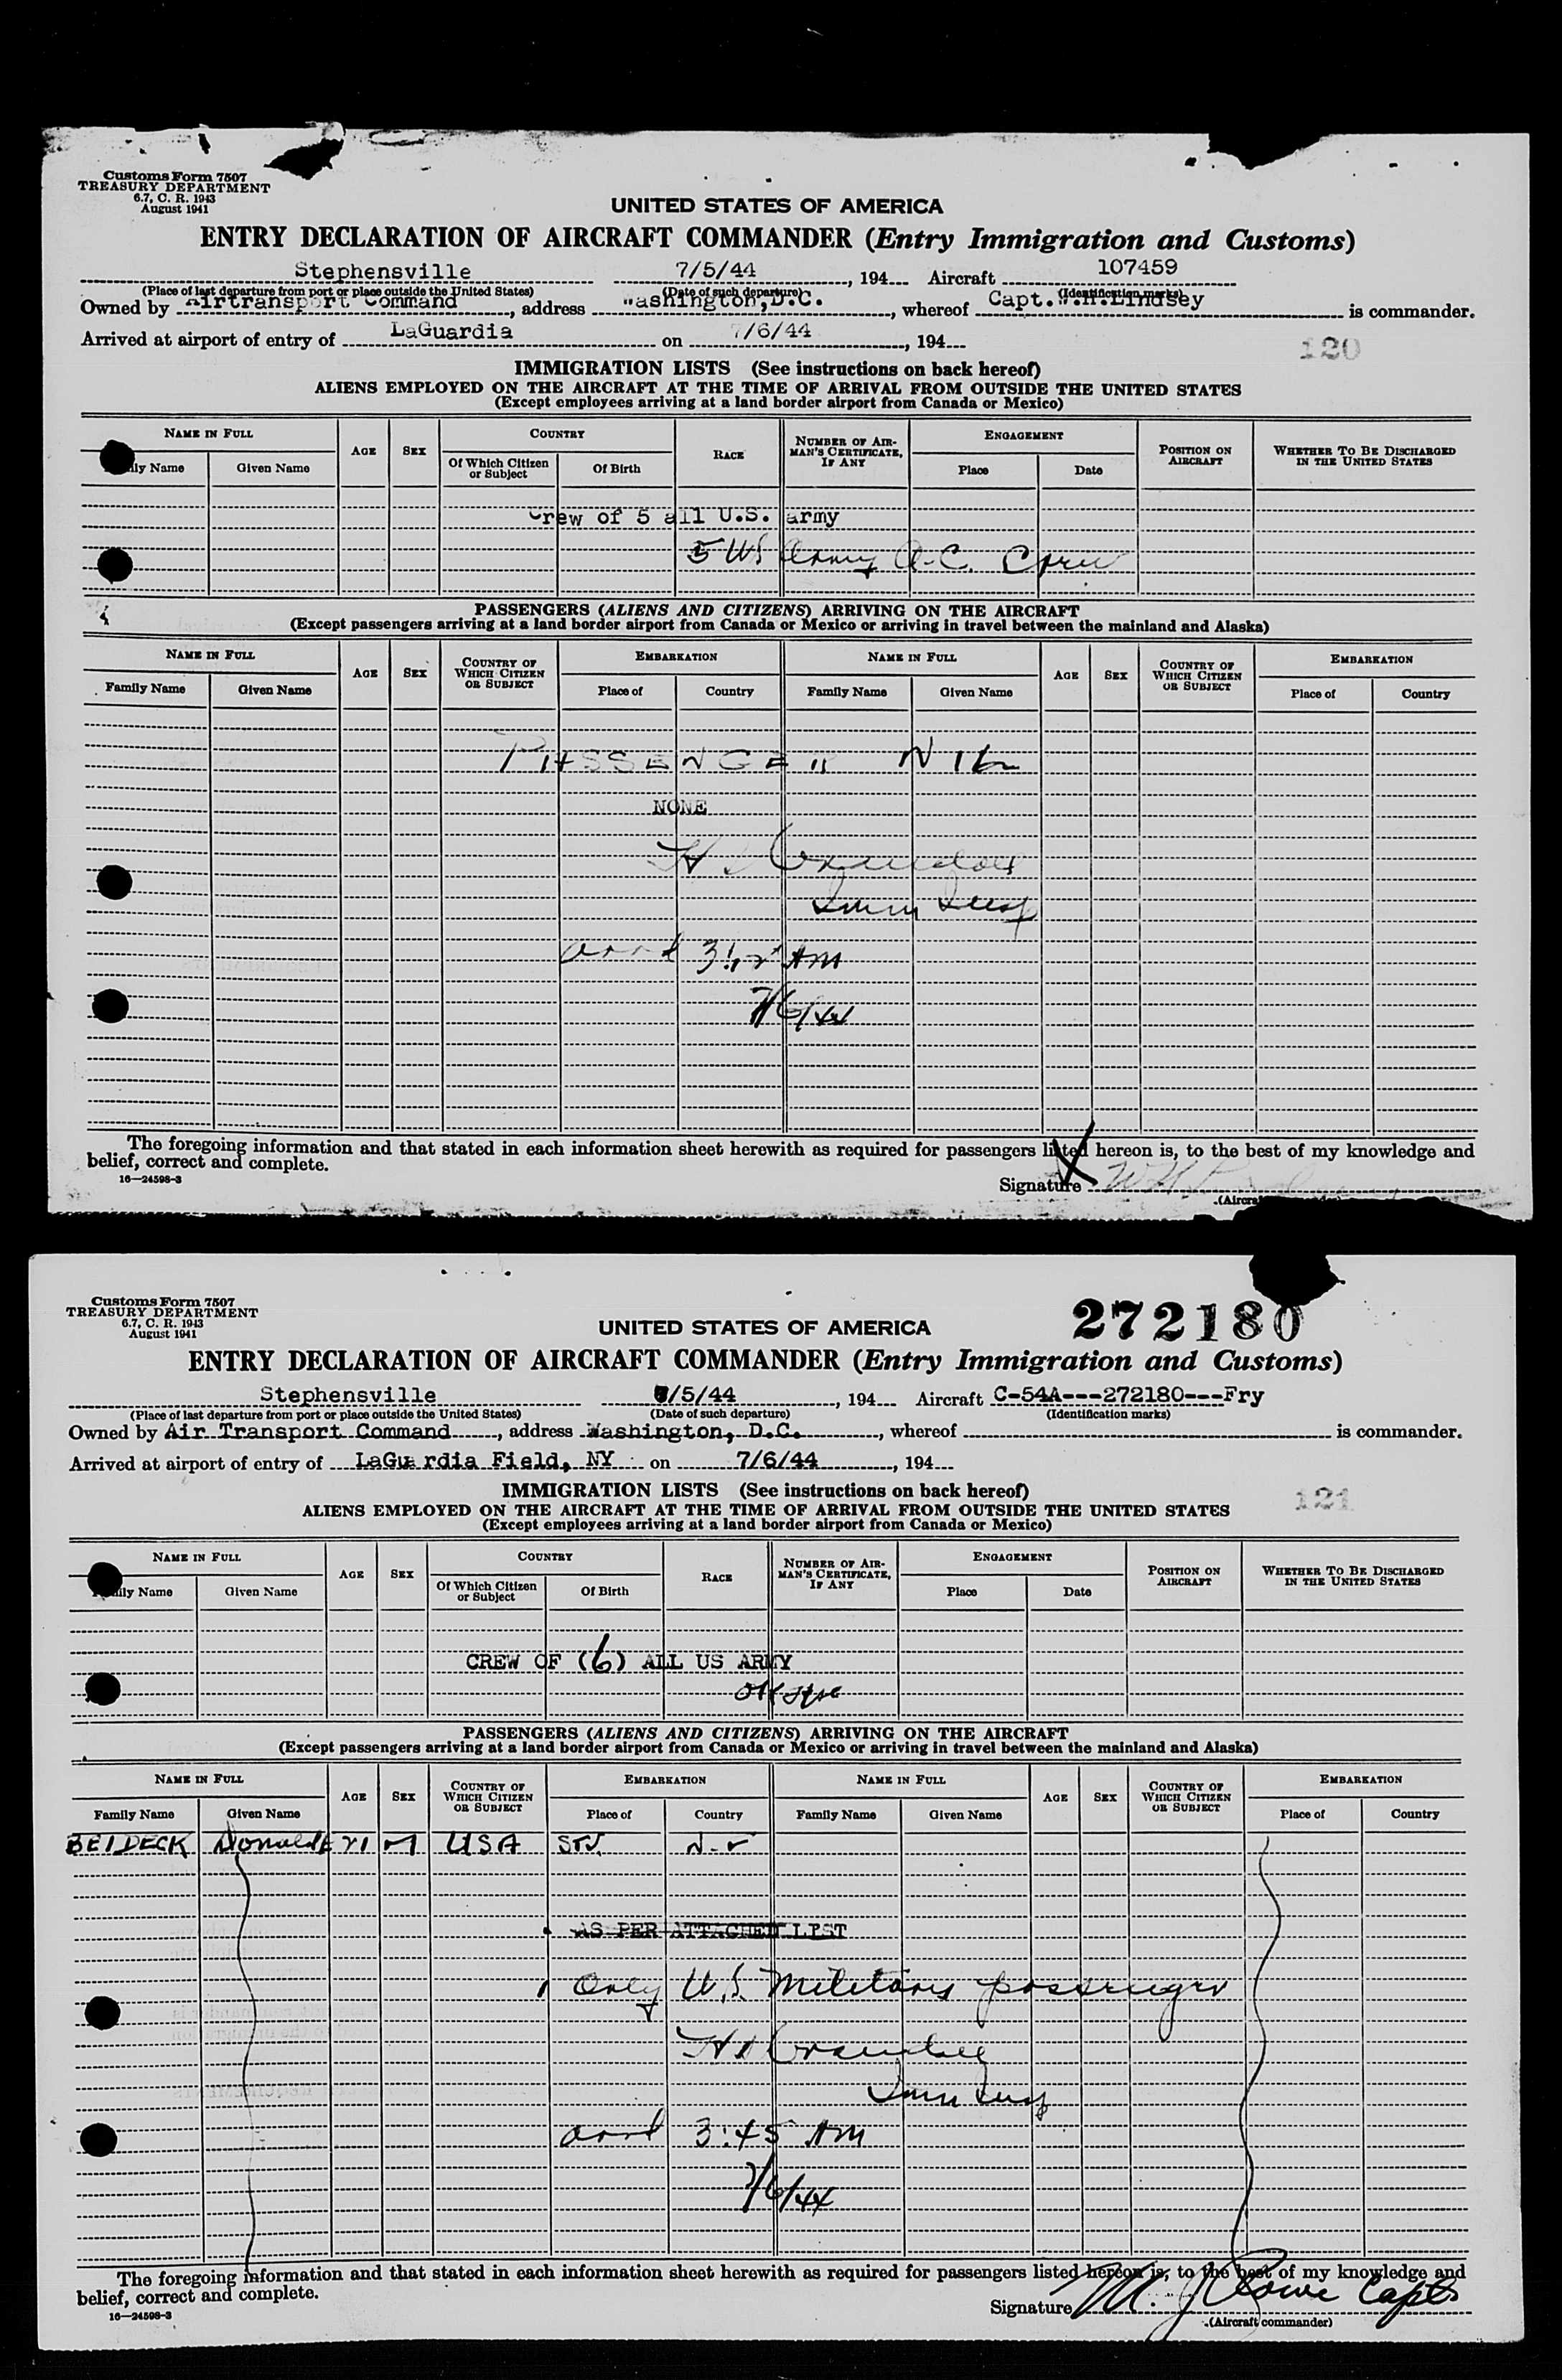 Customs Form 7507
TREASURY DEPARTMENT
6.7, C. R. 1943
August 1941
UNITED STATES OF AMERICA
ENTRY DECLARATION OF AIRCRAFT COMMANDER (Entry Immigration and Customs)
Stephensville 7/5/44, 194 Aircraft 107459
(Place of last departure from port or place outside the United States) (Date of such departure) (Identification marks)
Owned by Airtransport Command, address Washington,D.C., whereof Capt. Lindsey is commander.
Arrived at airport of entry of LaGuardia on 7/6/44, 194
120
IMMIGRATION LISTS (See instructions on back hereof)
ALIENS EMPLOYED ON THE AIRCRAFT AT THE TIME OF ARRIVAL FROM OUTSIDE THE UNITED STATES
(Except employees arriving at a land border airport from Canada or Mexico)
NAME IN FULL AGE SEX COUNTRY RACE NUMBER OF AIRMAN'S CERTIFICATE, IF ANY ENGAGEMENT POSITION ON AIRCRAFT WHETHER TO BE DISCHARGED IN THE UNITED STATES
Family Name Given Name Of Which Citizen or Subject Of Birth Place Date
Crew of 5 all U.S. army
5 US Army A.C. Crew
PASSENGERS (ALIENS AND CITIZENS) ARRIVING ON THE AIRCRAFT
(Except passengers arriving at a land border airport from Canada or Mexico or arriving in travel between the mainland and Alaska)
NAME IN FULL AGE SEX COUNTRY OF WHICH CITIZEN OR SUBJECT EMBARKATION NAME IN FULL AGE SEX COUNTRY OF WHICH CITIZEN OR SUBJECT EMBARKATION
Family Name Given Name Place of Country Family Name Given Name Place of Country
PASSENGER NIL
NONE
Imm Insp
arrd AM
7/6/44
The foregoing information and that stated in each information sheet herewith as required for passengers listed hereon is, to the best of my knowledge and
belief, correct and complete.
16—24598-3
Signature
Customs Form 7507
TREASURY DEPARTMENT
6.7, C. R. 1943
August 1941
272180
UNITED STATES OF AMERICA
ENTRY DECLARATION OF AIRCRAFT COMMANDER (Entry Immigration and Customs)
Stephensville 7/5/44, 194 Aircraft C-54A---272180---Fry
(Place of last departure from port or place outside the United States) (Date of such departure) (Identification marks)
Owned by Air Transport Command, address Washington, D.C., whereof is commander.
Arrived at airport of entry of LaGuardia Field, NY on 7/6/44, 194
121
IMMIGRATION LISTS (See instructions on back hereof)
ALIENS EMPLOYED ON THE AIRCRAFT AT THE TIME OF ARRIVAL FROM OUTSIDE THE UNITED STATES
(Except employees arriving at a land border airport from Canada or Mexico)
NAME IN FULL AGE SEX COUNTRY RACE NUMBER OF AIRMAN'S CERTIFICATE, IF ANY ENGAGEMENT POSITION ON AIRCRAFT WHETHER TO BE DISCHARGED IN THE UNITED STATES
Family Name Given Name Of Which Citizen or Subject Of Birth Place Date
CREW OF (6) ALL US ARMY
PASSENGERS (ALIENS AND CITIZENS) ARRIVING ON THE AIRCRAFT
(Except passengers arriving at a land border airport from Canada or Mexico or arriving in travel between the mainland and Alaska)
NAME IN FULL AGE SEX COUNTRY OF WHICH CITIZEN OR SUBJECT EMBARKATION NAME IN FULL AGE SEX COUNTRY OF WHICH CITIZEN OR SUBJECT EMBARKATION
Family Name Given Name Place of Country Family Name Given Name Place of Country
BEIDECK Donald E 21 M USA
AS PER ATTACHED LIST
Only U.S. Military passenger
Imm Insp
arrd 3:45 AM
7/6/44
The foregoing information and that stated in each information sheet herewith as required for passengers listed hereon is, to the best of my knowledge and
belief, correct and complete.
16—24598-3
Signature Capt
(Aircraft commander)